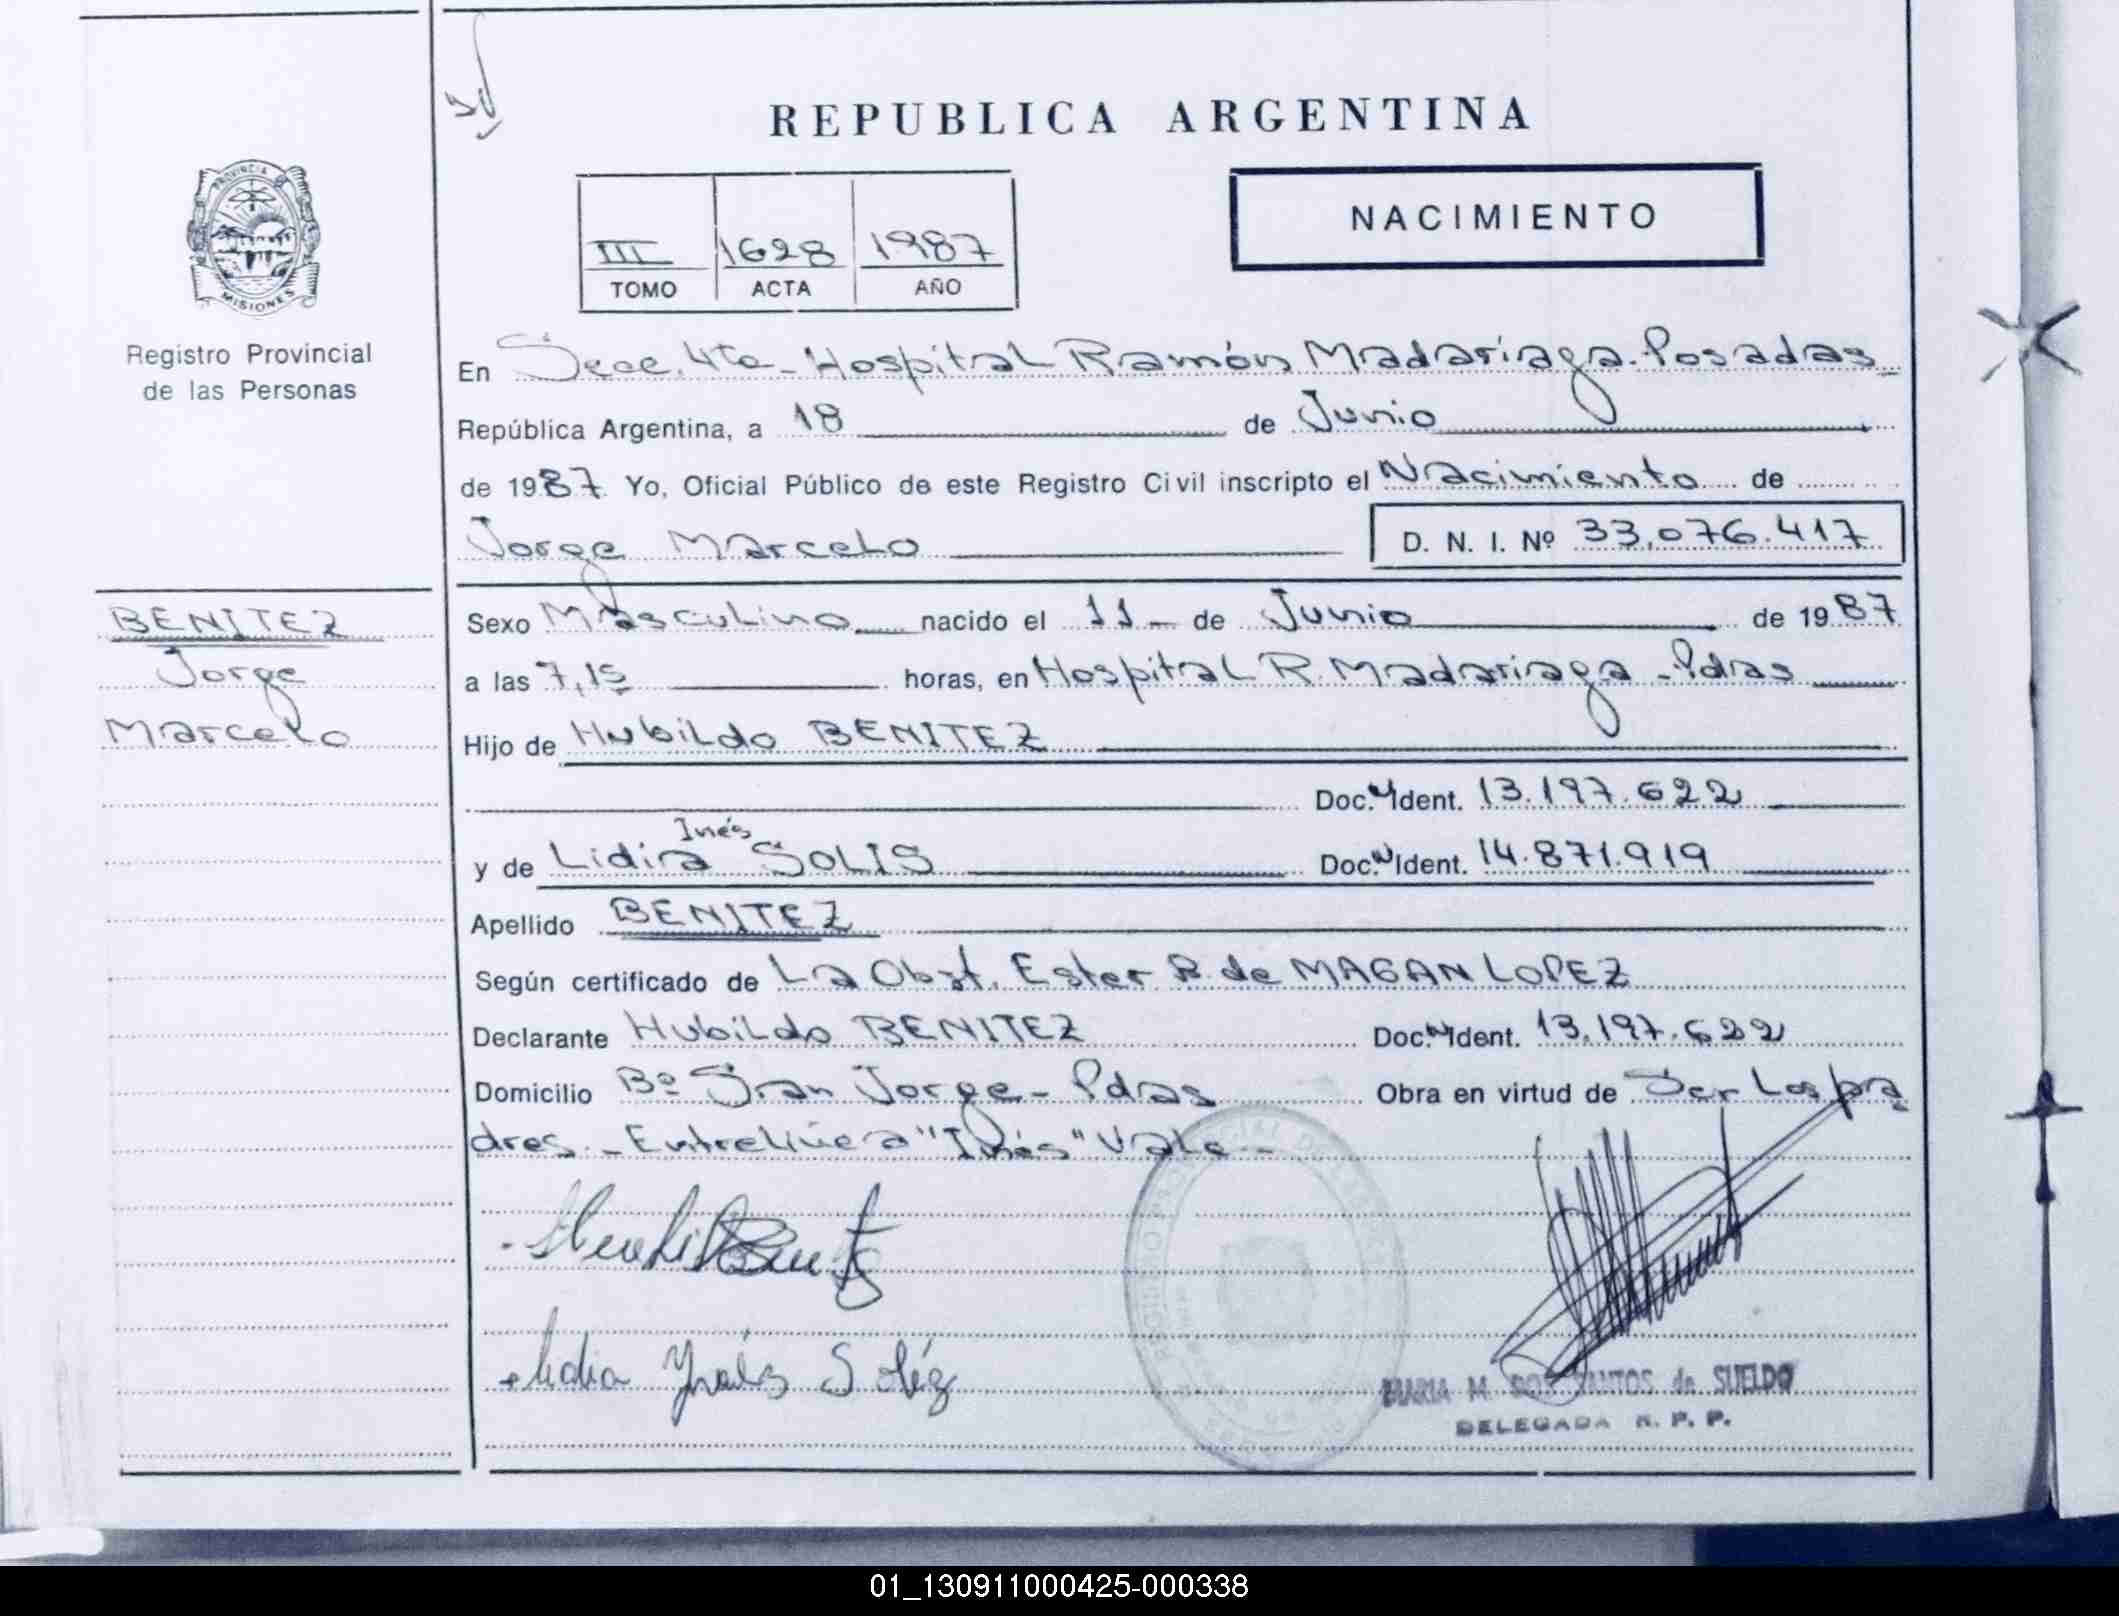 REPUBLICA ARGENTINA
PROVINCIA DE
MISIONES
Registro Provincial
de las Personas
III 1628 1987
TOMO ACTA AÑO
NACIMIENTO
En Secc. 4ta - Hospital Ramón Madariaga. Posadas
República Argentina, a 18 de Junio
de 1987 Yo, Oficial Público de este Registro Civil inscripto el Nacimiento de
Jorge Marcelo D. N. I. Nº 33.076.417
BENITEZ
Jorge
Marcelo
Sexo Masculino nacido el 11 - de Junio de 1987
a las 7,15 horas, en Hospital R. Madariaga - Pdas
Hijo de Hubildo BENITEZ
Doc. Ident. 13.197.622
Inés
y de Lidia SOLIS Doc. Ident. 14.871.919
Apellido BENITEZ
Según certificado de La Obst. Ester R. de MAGAN LOPEZ
Declarante Hubildo BENITEZ Doc. Ident. 13.197.622
Domicilio Bº San Jorge - Pdas Obra en virtud de Ser los pa
dres. - Entrelínea "Inés" Vale -
Lidia Ynés Soliz
MARIA M. DOS SANTOS de SUELDO
DELEGADA R. P. P.
01_130911000425-000338